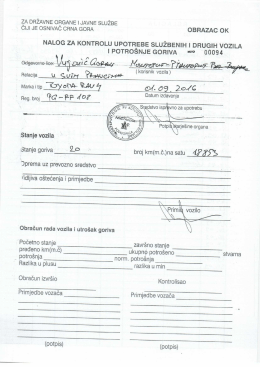 ZA DRŽAVNE ORGANE I JAVNE SLUŽBE
ČIJI JE OSNIVAČ CRNA GORA
OBRAZAC OK
NALOG ZA KONTROLU UPOTREBE SLUŽBENIH I DRUGIH VOZILA
I POTROŠNJE GORIVA 00094
Odgovorno lice
(korisnik vozila)
Relacija U SVIM PRAVCIMA
Marka i tip TOYOTA RAV4 01.09.2016
Datum izdavanja
Reg. broj PG-RF 108
Sredstvo spremno za upotrebu
Potpis ovjerene organa
Stanje vozila
Stanje goriva 20 broj km(m.č.)na satu 18853
Oprema uz prevozno sredstvo
Vidljiva oštećenja i primjedbe
Primio vozilo
Obračun rada vozila i utrošak goriva
Početno stanje završno stanje
pređeno km(m.č) ukupno potrošeno stvarna
potrošnja norm. potrošnja
Razlika u plusu razlika u min
Obračun izvršio Kontrolisao
Primjedbe vozača Primjedbe vozača
(potpis) (potpis)